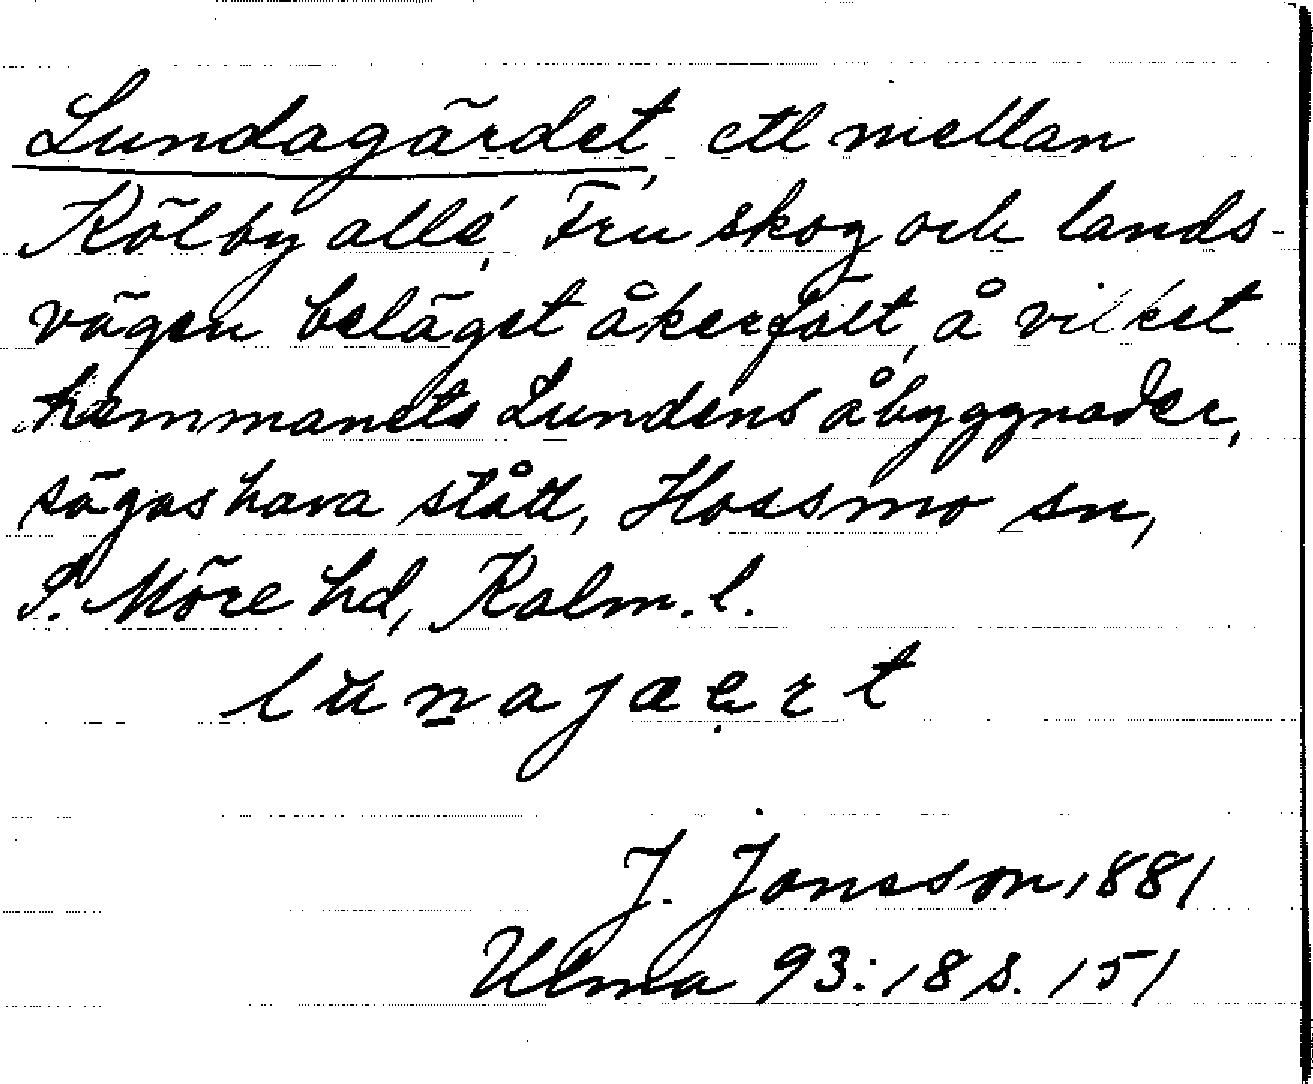 Lundagärdet, ett mellan
Kölby allé, Fru skog och lands-
vägen beläget åkerfält, å vilket
hemmanets Lundens åbyggnader,
sägas hava stått, Hossmo sn,
S. Möre hd, Kalm. l.
lunajæert
J. Jonsson 1881
Ulma 93:18 s. 151